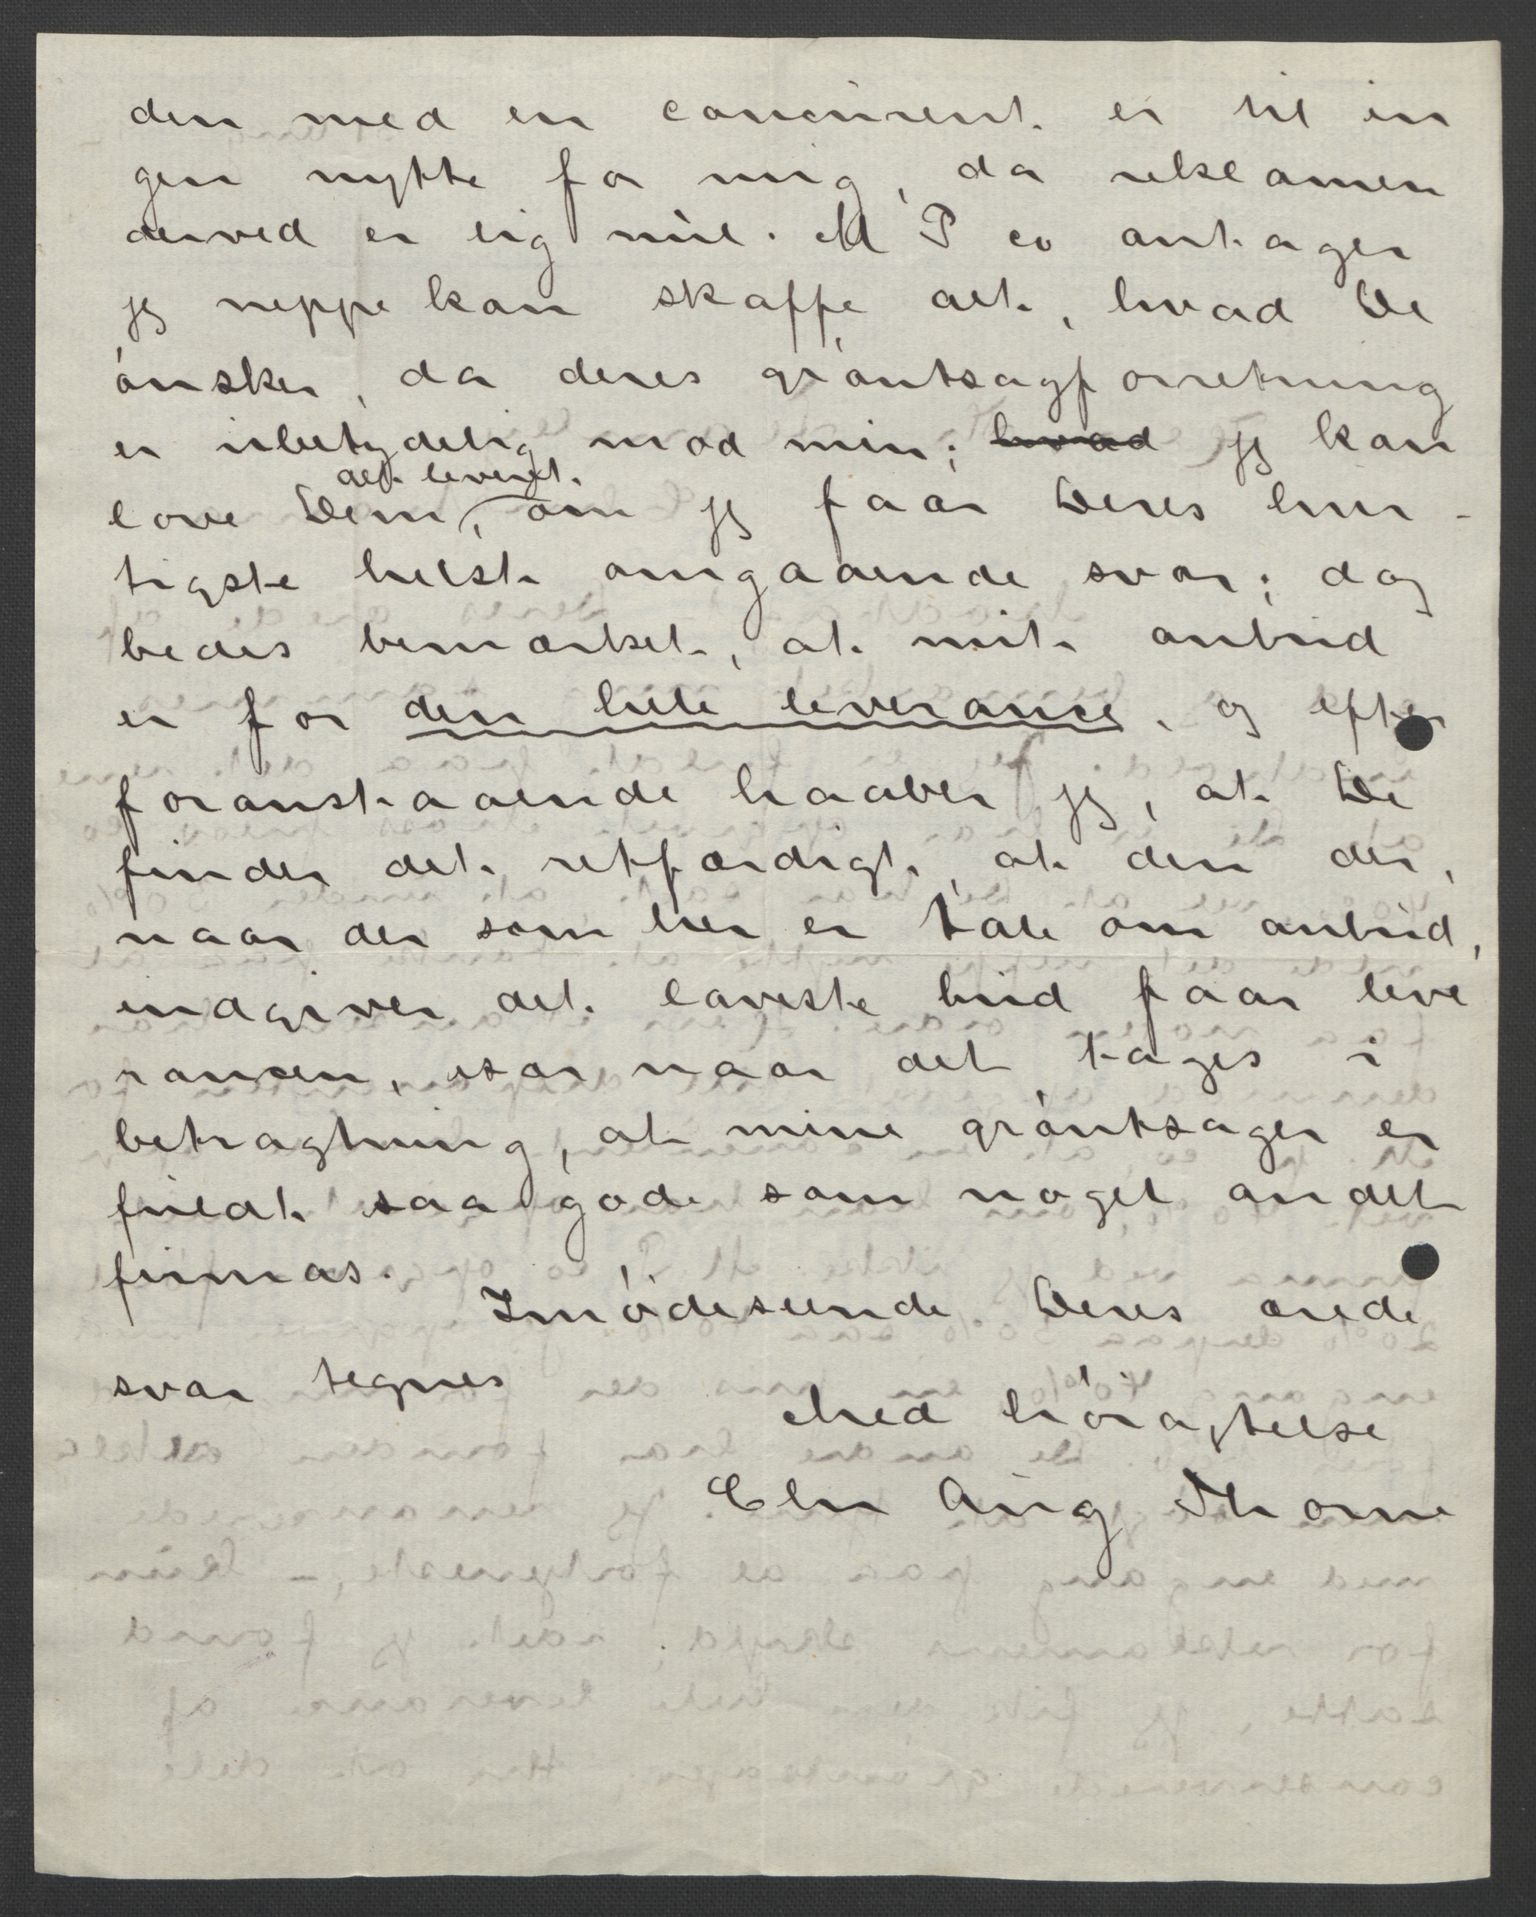 den med en concurrent er til in
gen nytte for mig, da reklamen
derved er lig nul. M P co antager
jeg neppe kan skaffe alt, hvad De
ønsker, da deres grøntsagforretning
er ubetydelig mod min; hvad jeg kan
alt leveret.
love Dem, om jeg faar Deres hur-
tigste helst omgaaende svar; dog
bedes bemærket, at mit anbud
er for den hele leverance, og efter
foranstaaende haaber jeg, at De
finder det retfærdigt, at den der,
naar der som her er tale om anbud,
indgiver det laveste bud faar leve
rancen, især naar det tages i
betragtning, at mine grøntsager er
fuldt saa gode som noget andet
firmas.
Imødeseende Deres ærede
svar tegnes
Med høiagtelse
Chr Aug Thorne